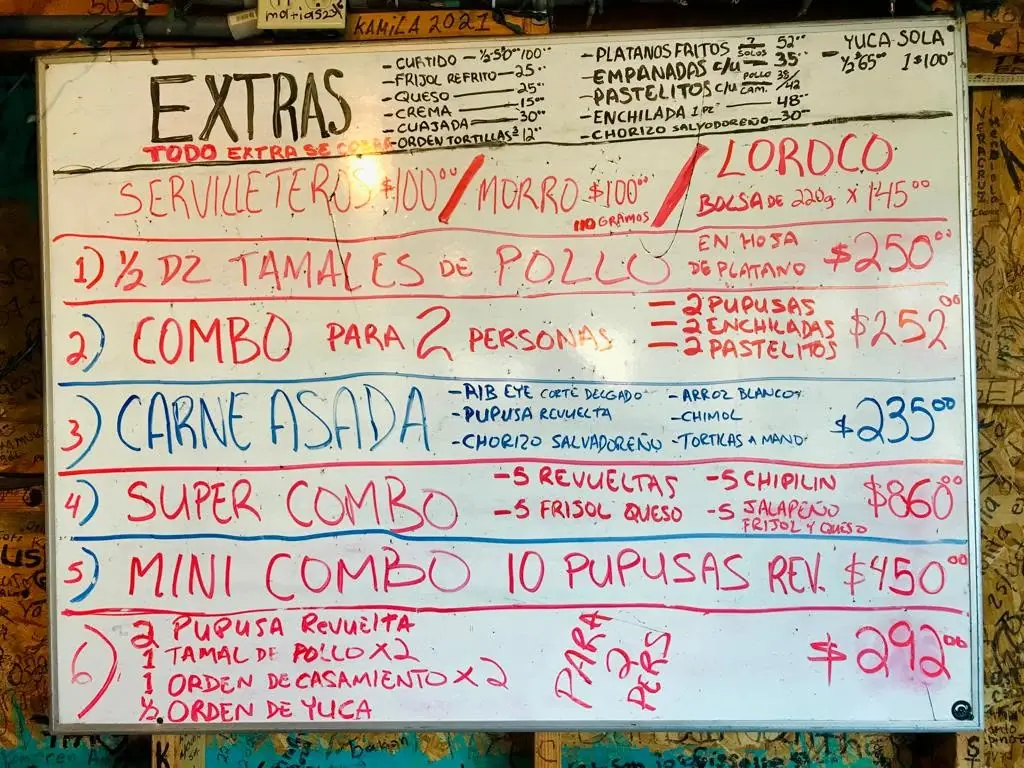 matias
KAMILA 2021
EXTRAS
TODO EXTRA SE COBRA
- CURTIDO - ½-50⁰⁰ 100⁰⁰
- FRIJOL REFRITO - 25⁰⁰
- QUESO - 25⁰⁰
- CREMA - 15⁰⁰
- CUAJADA - 30⁰⁰
- ORDEN TORTILLAS 3 12⁰⁰
- PLATANOS FRITOS 2 SOLOS 52⁰⁰
- EMPANADAS c/u - 35⁰⁰
- PASTELITOS c/u POLLO 38/ CAM. /42
- ENCHILADA 1 PZ - 48⁰⁰
- CHORIZO SALVODOREÑO - 30⁰⁰
- YUCA SOLA
½ $65⁰⁰ 1 $100⁰⁰
SERVILLETEROS $100⁰⁰ / MORRO $100⁰⁰ 110 GRAMOS / LOROCO
BOLSA DE 220g x 145⁰⁰
1) ½ DZ TAMALES DE POLLO EN HOJA DE PLATANO $250⁰⁰
2) COMBO PARA 2 PERSONAS
- 2 PUPUSAS
- 2 ENCHILADAS
- 2 PASTELITOS
$252⁰⁰
3) CARNE ASADA
- RIB EYE CORTE DELGADO
- PUPUSA REVUELTA
- CHORIZO SALVADOREÑO
- ARROZ BLANCO
- CHIMOL
- TORTILAS A MANO
$235⁰⁰
4) SUPER COMBO
- 5 REVUELTAS
- 5 FRIJOL QUESO
- 5 CHIPILIN
- 5 JALAPEÑO
FRIJOL Y QUESO
$860⁰⁰
5) MINI COMBO 10 PUPUSAS REV. $450⁰⁰
6) 2 PUPUSA REVUELTA
1 TAMAL DE POLLO X 2
1 ORDEN DE CASAMIENTO X 2
½ ORDEN DE YUCA
PARA
2
PERS
$292⁰⁰
VERACRUZ